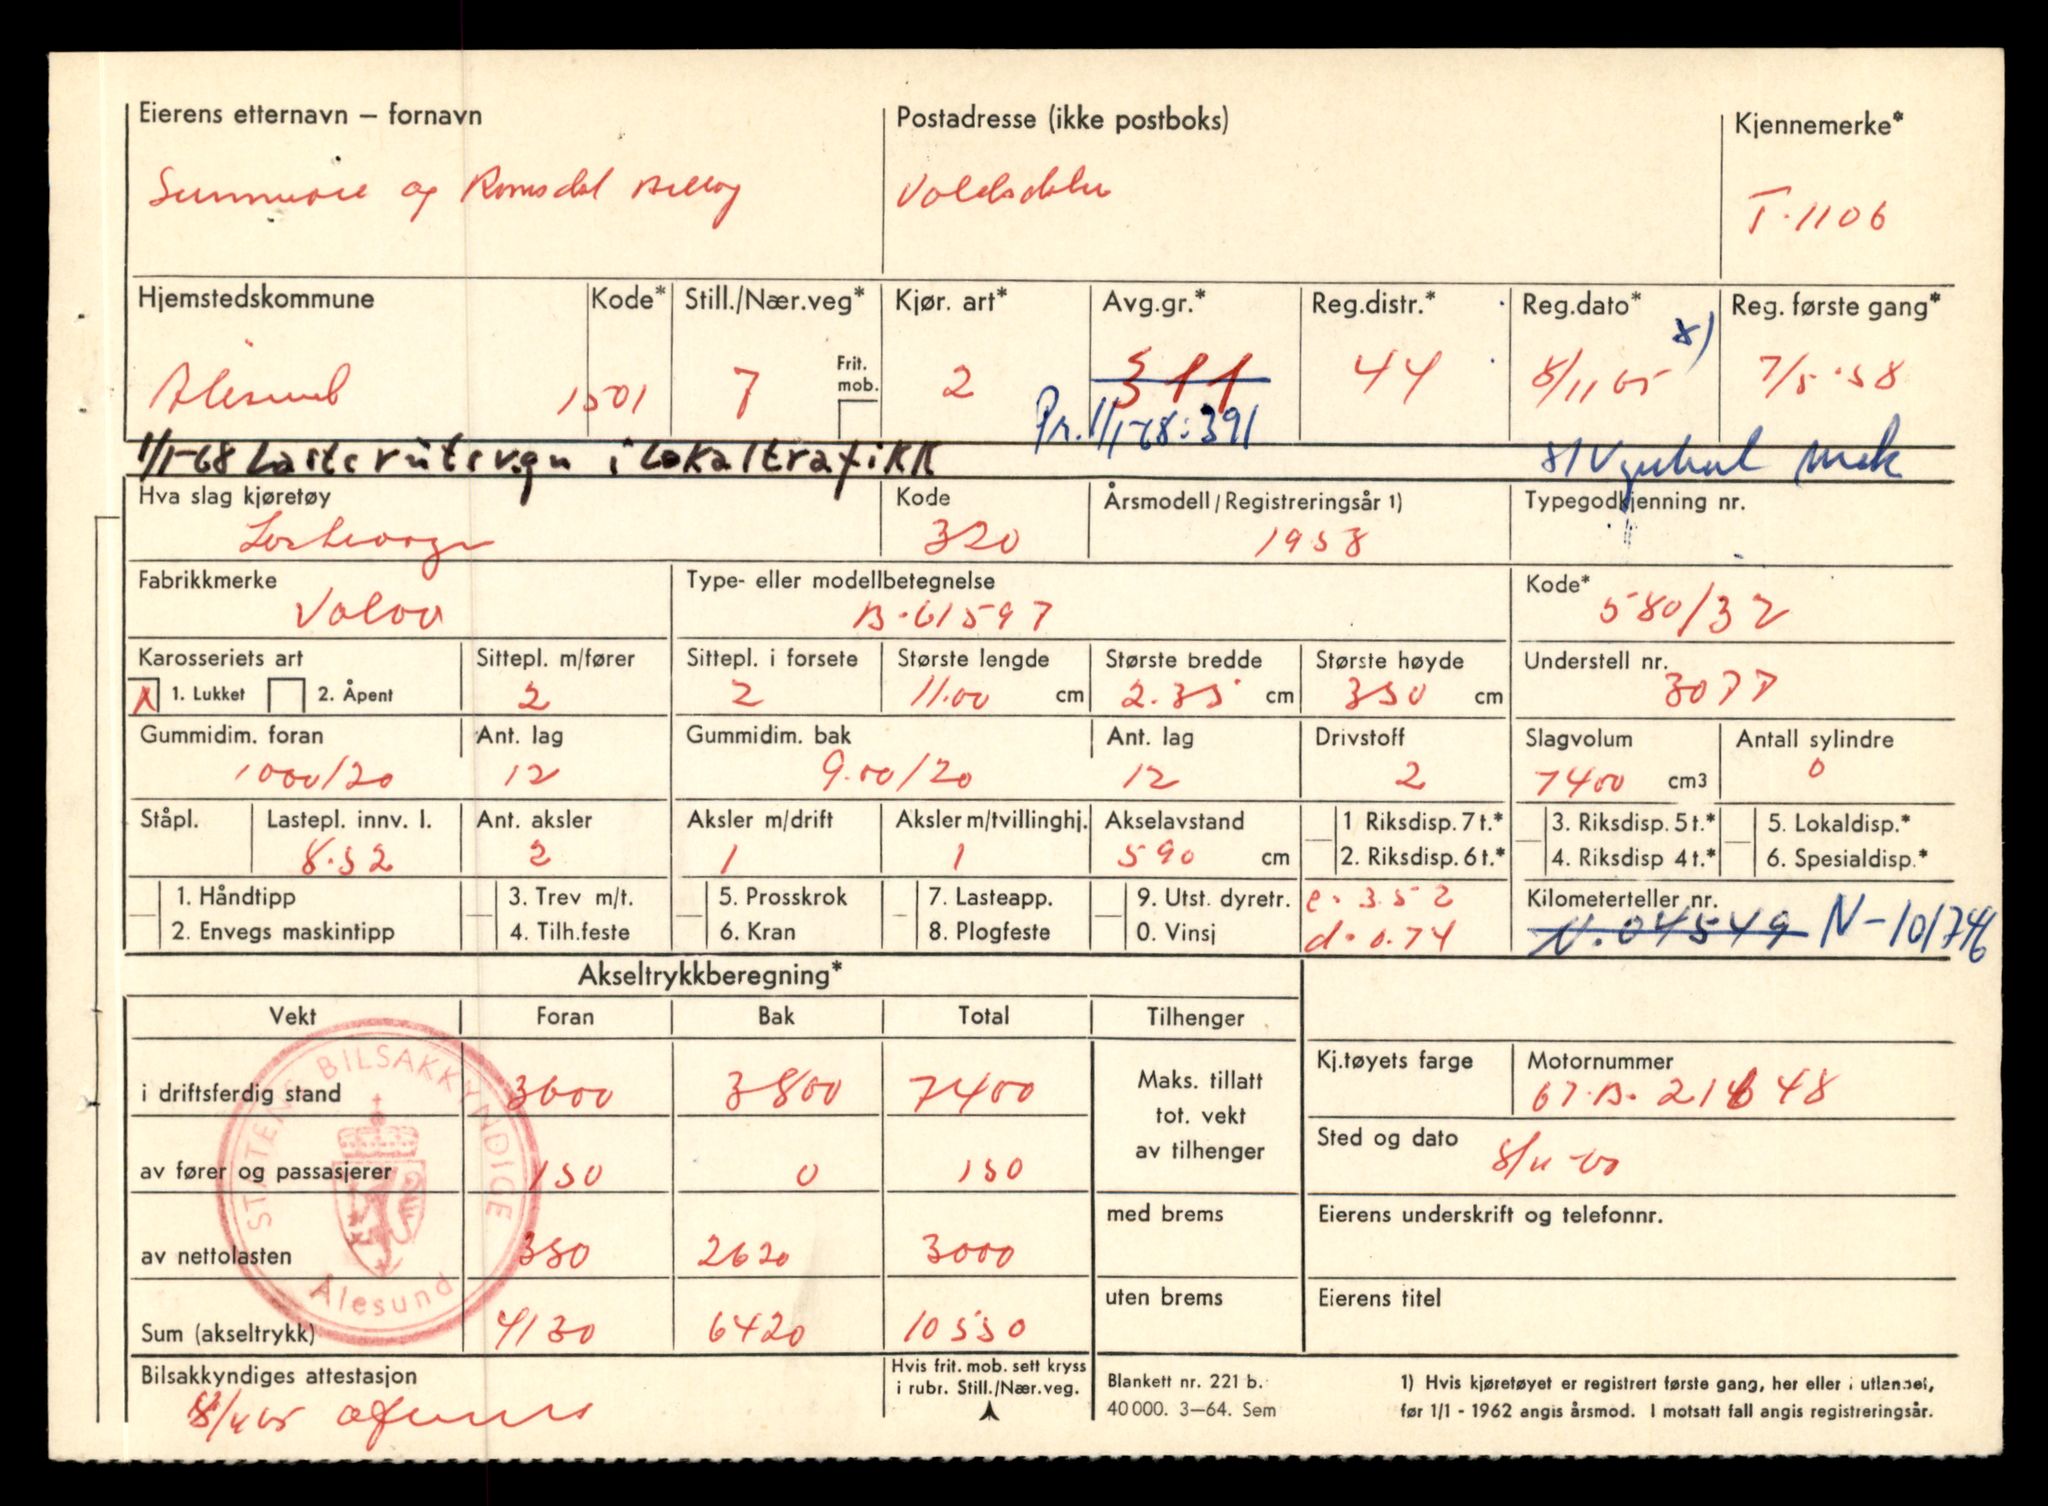 Eierens etternavn – fornavn Postadresse (ikke postboks) Kjennemerke*
og Romsdal T-1106
Hjemstedskommune Kode* Still./Nær.veg* Kjør. art* Avg.gr.* Reg.distr.* Reg.dato* Reg. første gang*
Frit. mob.
Ålesund 1501 7 2 311 44 8/11 65 x) 7/5-58
Pr. 1/1-68: 391
1/1-68 i Lokaltrafikk
Hva slag kjøretøy Kode Årsmodell/Registreringsår 1) Typegodkjenning nr.
Lastevogn 320 1958
Fabrikkmerke Type- eller modellbetegnelse Kode*
Volvo B-61597 580/32
Karosseriets art Sittepl. m/fører Sittepl. i forsete Største lengde Største bredde Største høyde Understell nr.
X 1. Lukket 2. Åpent 2 2 11.00 cm 2.35 cm 350 cm 3077
Gummidim. foran Ant. lag Gummidim. bak Ant. lag Drivstoff Slagvolum Antall sylindre
1000/20 12 9.00/20 12 2 7400 cm3
Ståpl. Lastepl. innv. l. Ant. aksler Aksler m/drift Aksler m/tvillinghj. Akselavstand 1 Riksdisp. 7 t.* 3. Riksdisp. 5 t.* 5. Lokaldisp.*
8.52 2 1 1 590 cm 2. Riksdisp. 6 t.* 4. Riksdisp 4 t.* 6. Spesialdisp.*
1. Håndtipp 3. Trev m/t. 5. Prosskrok 7. Lasteapp. 9. Utst. dyretr. e = 3.52 Kilometerteller nr.
2. Envegs maskintipp 4. Tilh.feste 6. Kran 8. Plogfeste 0. Vinsj d = 0.74 N.04549 N-101746
Akseltrykkberegning*
Vekt Foran Bak Total Tilhenger
i driftsferdig stand 3600 3800 7400
Maks. tillatt
tot. vekt
av tilhenger
Kj.tøyets farge Motornummer
67.B.
av fører og passasjerer 150 0 150
Sted og dato
av nettolasten 380 2620 3000
med brems
Eierens underskrift og telefonnr.
Sum (akseltrykk) 4130 6420 10550
uten brems
Eierens titel
STATENS BILSAKKYNDIGE
Ålesund
Bilsakkyndiges attestasjon
Hvis frit. mob. sett kryss
i rubr. Still./Nær.veg.
Blankett nr. 221 b.
40 000. 3—64. Sem
1) Hvis kjøretøyet er registrert første gang, her eller i utlandet,
før 1/1 - 1962 angis årsmod. I motsatt fall angis registreringsår.